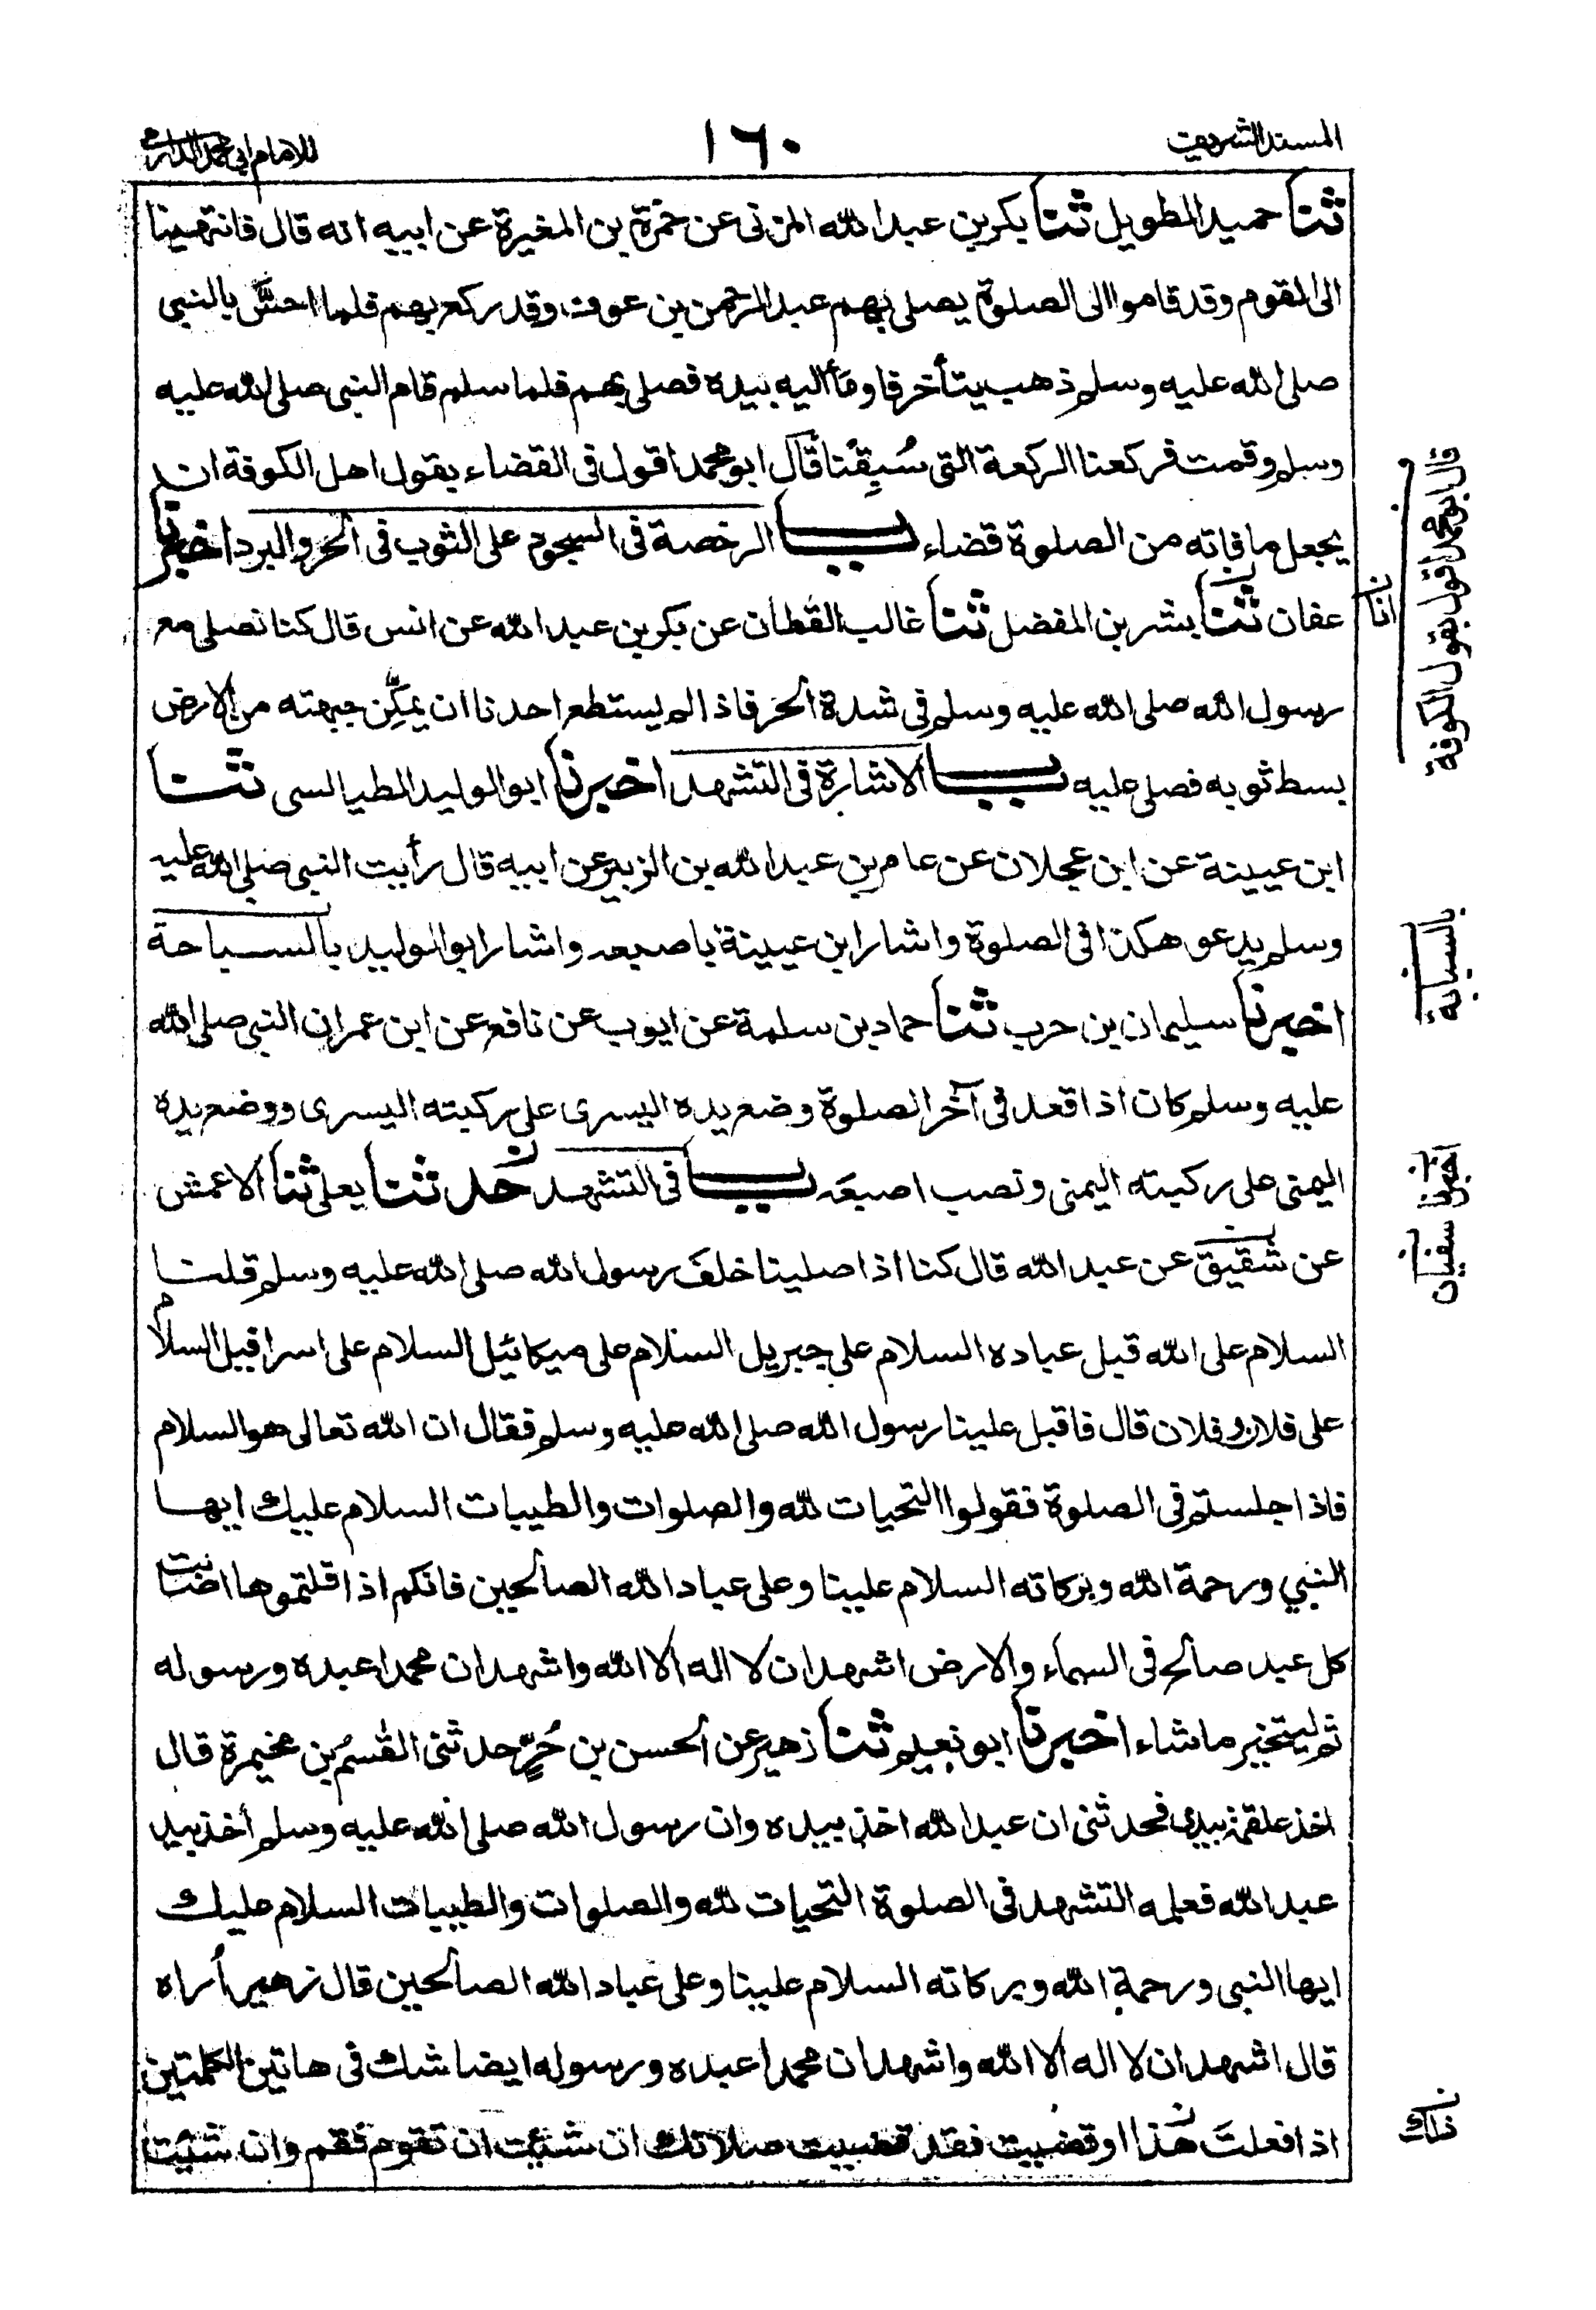 المسند الشريف
١٦٠
للامام ابي محمد الدارمي
ثنا حميد الطويل ثنا بكر بن عبد الله المزنى عن حمزة بن المغيرة عن ابيه انه قال فانتهينا
الى القوم وقد قاموا الى الصلوة يصلى بهم عبد الرحمن بن عوف وقد ركع بهم فلما احسَّ بالنبي
صلى الله عليه وسلم ذهب يتأخر فاومأ اليه بيده فصلى بهم فلما سلم قام النبى صلى الله عليه
وسلم وقمت فركعنا الركعة التى سُبِقْنا قال ابو محمد اقول فى القضاء بقول اهل الكوفة ان
يجعل ما فاته من الصلوة قضاء باب الرخصة فى السجود على الثوب فى الحر والبرد اخبرنا
عفان ثنا بشر بن المفضل ثنا غالب القطان عن بكر بن عبد الله عن انس قال كنا نصلى مع
رسول الله صلى الله عليه وسلم فى شدة الحر فاذا لم يستطع احدنا ان يمكِّن جبهته من الارض
بسط ثوبه فصلى عليه باب الاشارة فى التشهد اخبرنا ابو الوليد الطيالسى ثنا
ابن عيينة عن ابن عجلان عن عامر بن عبد الله بن الزبير عن ابيه قال رأيت النبى صلى الله عليه
وسلم يدعو هكذا فى الصلوة واشار ابن عيينة باصبعه واشار ابو الوليد بالسباحة
اخبرنا سليمان بن حرب ثنا حماد بن سلمة عن ايوب عن نافع عن ابن عمر ان النبى صلى الله
عليه وسلم كان اذا قعد فى آخر الصلوة وضع يده اليسرى على ركبته اليسرى ووضع يده
اليمنى على ركبته اليمنى ونصب اصبعه باب فى التشهد حدثنا يعلى ثنا الاعمش
عن شقيق عن عبد الله قال كنا اذا صلينا خلف رسول الله صلى الله عليه وسلم قلنا
السلام على الله قبل عباده السلام على جبريل السلام على ميكائيل السلام على اسرافيل السلام
على فلان وفلان قال فاقبل علينا رسول الله صلى الله عليه وسلم فقال ان الله تعالى هو السلام
فاذا جلستم فى الصلوة فقولوا التحيات لله والصلوات والطيبات السلام عليك ايها
النبي ورحمة الله وبركاته السلام علينا وعلى عباد الله الصالحين فانكم اذا قلتموها اصابت
كل عبد صالح فى السماء والارض اشهد ان لا اله الا الله واشهد ان محمدا عبده ورسوله
ثم ليتخير ما شاء اخبرنا ابو نعيم ثنا زهير عن الحسن بن حُرٍّ حدثنى القٰسم بن مخيمرة قال
اخذ علقمة بيدى فحدثنى ان عبد الله اخذ بيده وان رسول الله صلى الله عليه وسلم أخذ بيد
عبد الله فعلمه التشهد فى الصلوة التحيات لله والصلوات والطيبات السلام عليك
ايها النبى ورحمة الله وبركاته السلام علينا وعلى عباد الله الصالحين قال زهير أُراه
قال اشهد ان لا اله الا الله واشهد ان محمدا عبده ورسوله ايضا شك فى هاتين الكلمتين
اذا فعلتَ هٰذا او قضيت فقد قضيت صلاتك ان شئت ان تقوم فقم وان شئت
قال ابو محمد اقول بقول الكوفة
انا
بالسبابة
اخبرنا
سفيان
ذلك